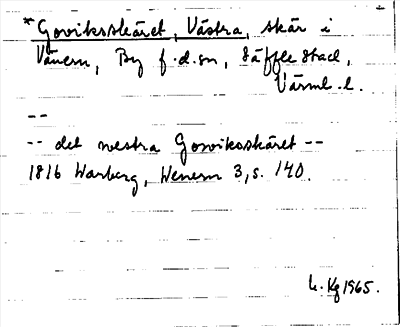 *Goviksskäret, Västra, skär i
Vänern, By f.d.sn, Säffle stad,
Värml. l.
--
-- det westra Gowiksskäret --
1816 Warberg, Wenern 3, s. 140.
L. Kg 1965.